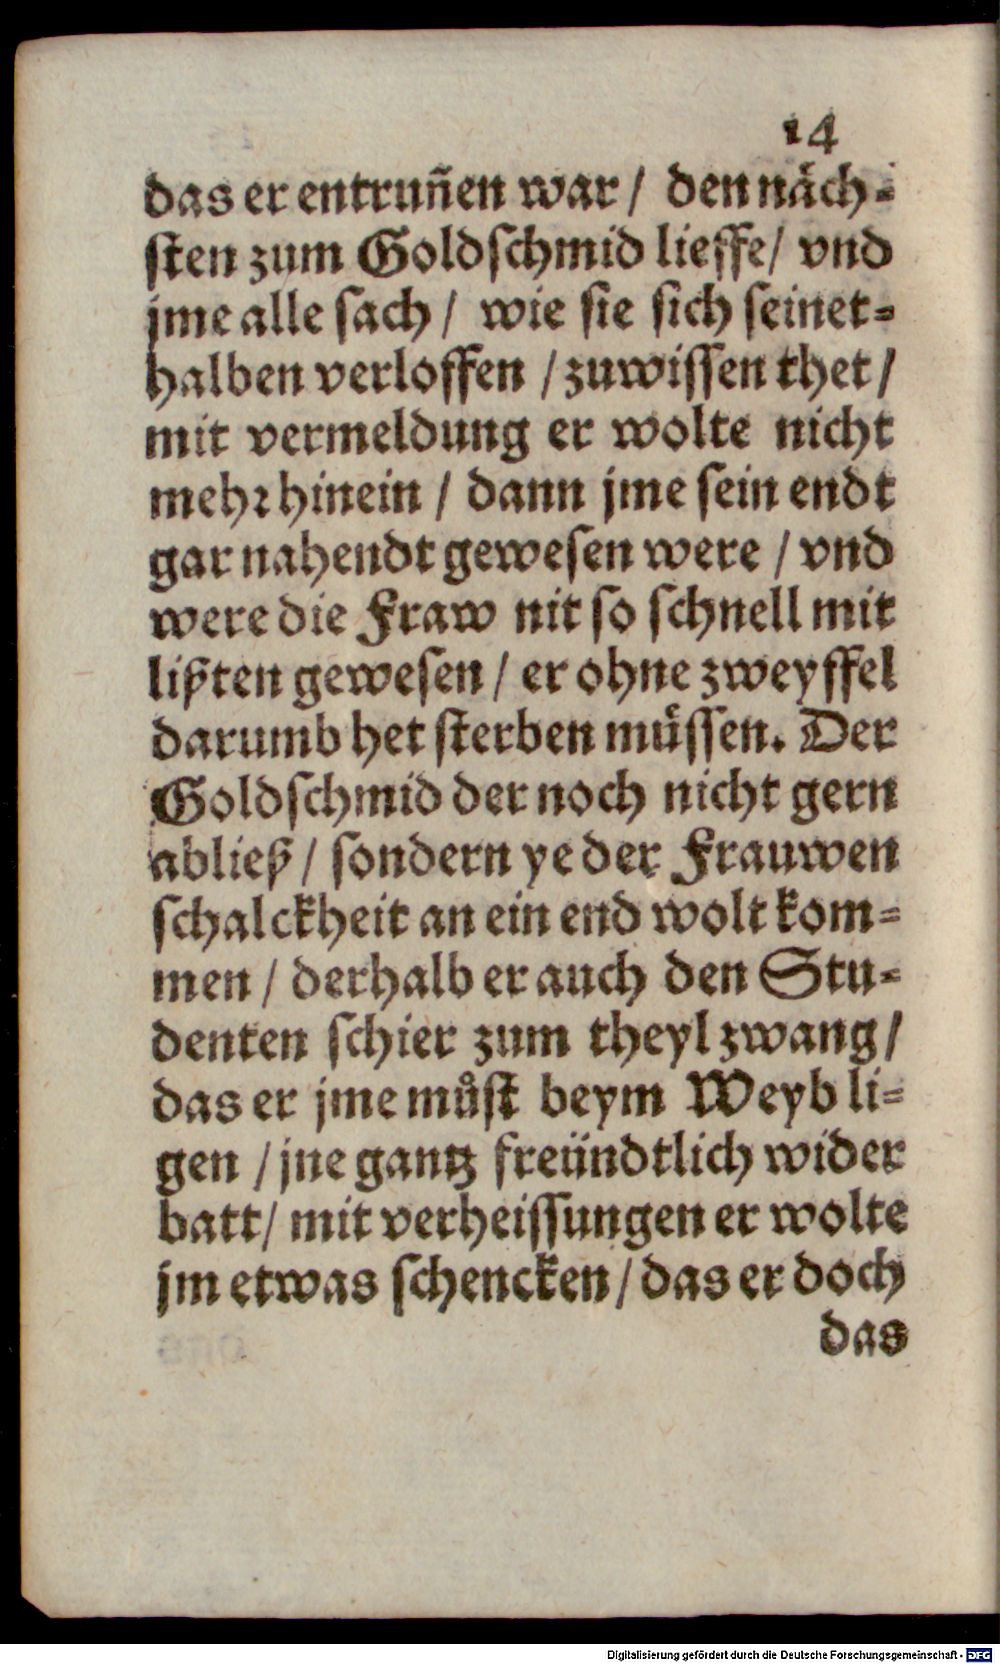 14
das er entrun̄en war / den näch⸗
sten zum Goldschmid lieffe / vnd
jme alle sach / wie sie sich seinet⸗
halben verloffen / zuwissen thet /
mit vermeldung er wolte nicht
mehr hinein / dann jme sein endt
gar nahendt gewesen were / vnd
were die Fraw nit so schnell mit
lißten gewesen / er ohne zweyffel
darumb het sterben müssen. Der
Goldschmid der noch nicht gern
abließ / sondern ye der Frauwen
schalckheit an ein end wolt kom⸗
men / derhalb er auch den Stu⸗
denten schier zum theyl zwang /
das er jme můst beym Weyb li⸗
gen / jne gantz freündtlich wider
batt / mit verheissungen er wolte
jm etwas schencken / das er doch
das
Digitalisierung gefördert durch die Deutsche Forschungsgemeinschaft - DFG